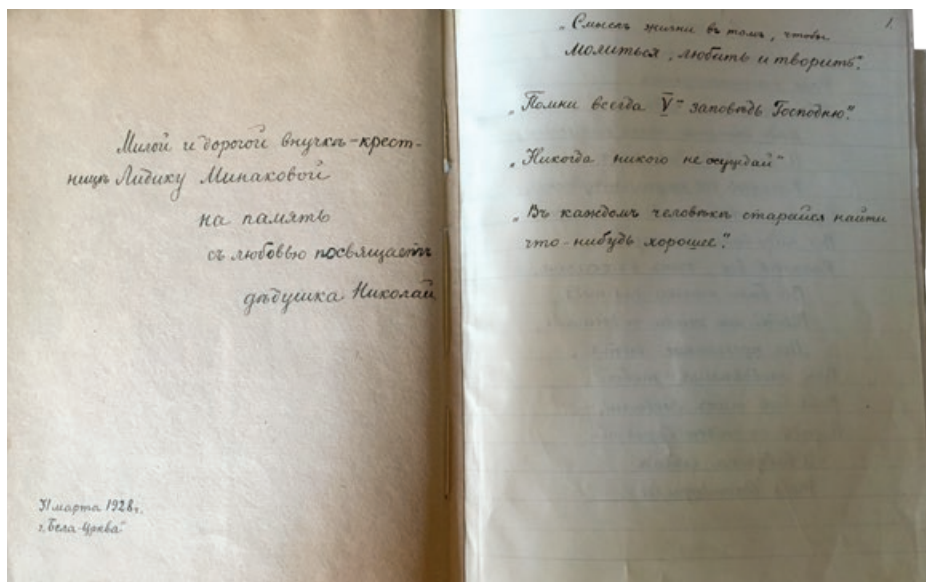 Милой и дорогой внучкѣ-крест-
ницѣ Лидику Минаковой
на память
съ любовью посвящаетъ
дѣдушка Николай
31 марта 1928 г.
г. „Бела-Црква“
1.
„Смыслъ жизни въ томъ, чтобы
молиться, любить и творить“.
„Помни всегда V-ю заповѣдь Господню“.
„Никогда никого не осуждай“
„Въ каждомъ человѣкѣ старайся найти
что-нибудь хорошее“.